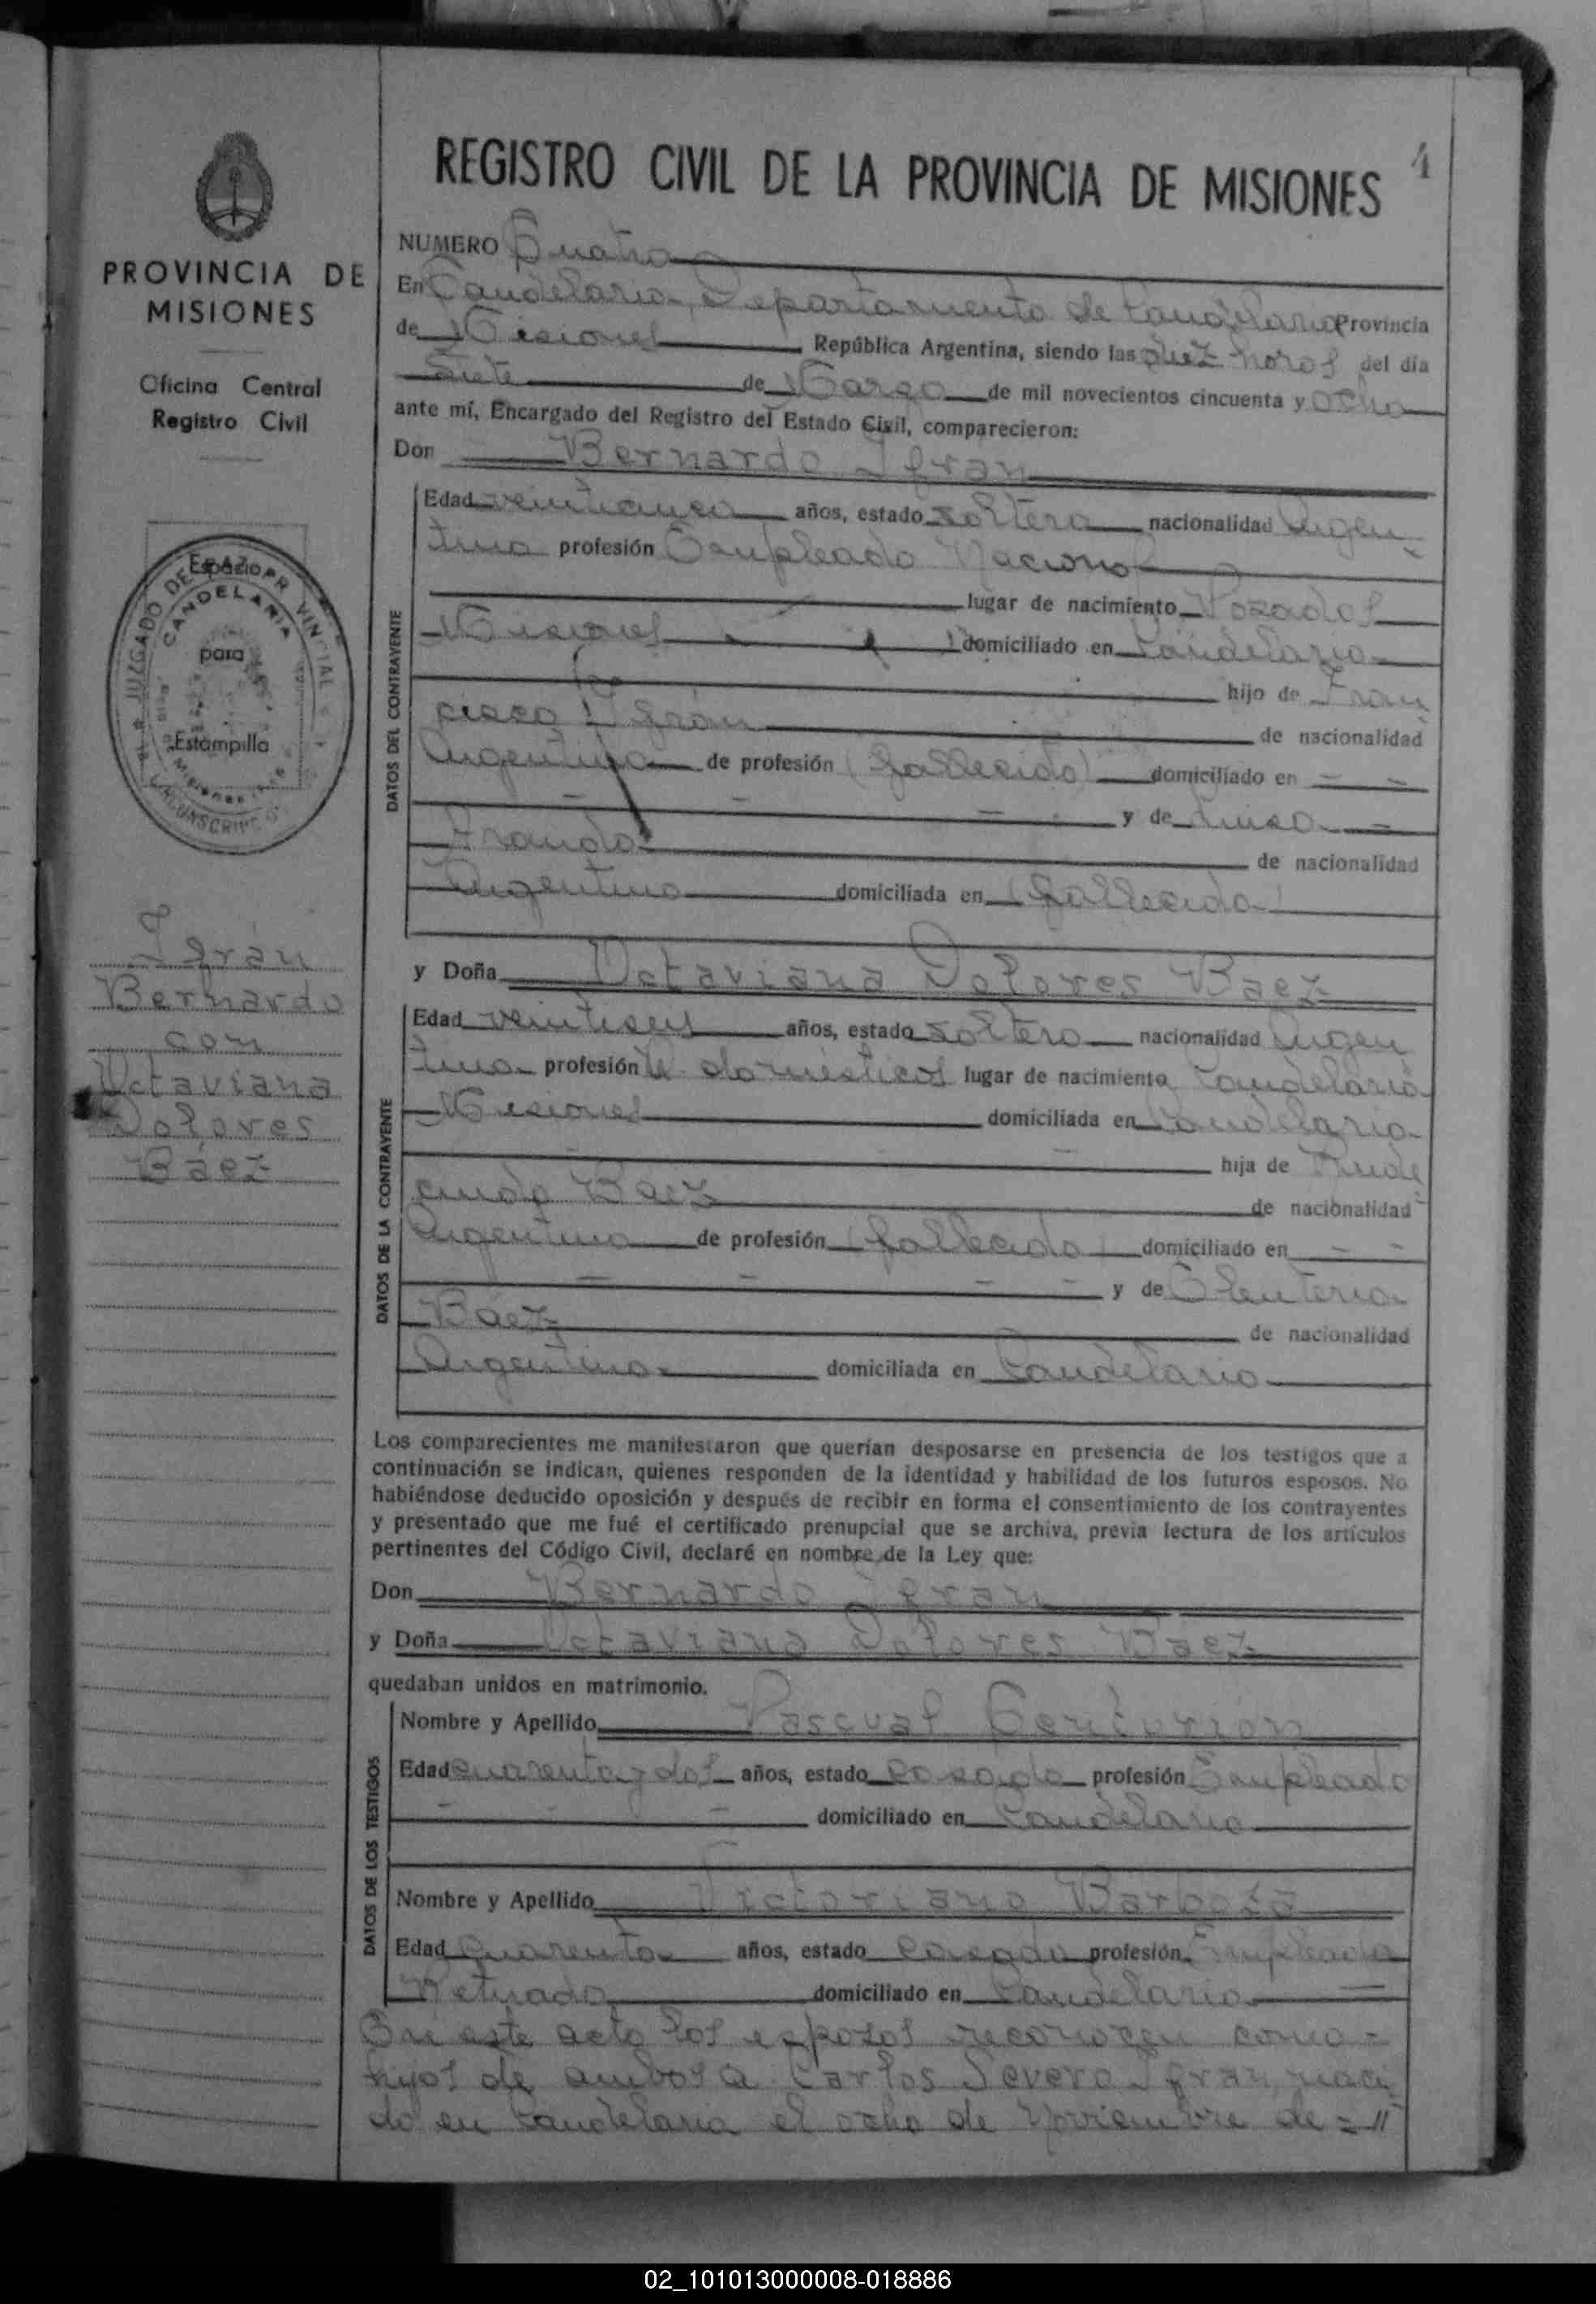 4
REGISTRO CIVIL DE LA PROVINCIA DE MISIONES
PROVINCIA DE
MISIONES
Oficina Central
Registro Civil
Espacio
para
Estampilla
JUZGADO DE PAZ
CANDELARIA
Misiones
Ifrán
Bernardo
con
Octaviana
Dolores
Báez
NUMERO Cuatro
En Candelaria, Departamento de Candelaria Provincia
de Misiones República Argentina, siendo las diez horas del día
Siete de Marzo de mil novecientos cincuenta y ocho
ante mí, Encargado del Registro del Estado Civil, comparecieron:
Don Bernardo Ifran
DATOS DEL CONTRAYENTE
Edad años, estado soltero nacionalidad Argen
tina profesión Empleado Nacional
lugar de nacimiento Posadas
Misiones domiciliado en Candelaria
hijo de Fran
cisco Ifrán de nacionalidad
Argentina de profesión (fallecido) domiciliado en - -
y de Luisa
de nacionalidad
Argentina domiciliada en (fallecida)
y Doña Octaviana Dolores Baez
DATOS DE LA CONTRAYENTE
Edad veintiseis años, estado soltera nacionalidad Argen
tina profesión Q. domésticos lugar de nacimiento Candelaria
Misiones domiciliada en Candelaria
hija de Rude
cindo Baez de nacionalidad
Argentina de profesión (fallecido) domiciliado en - -
y de Elenteria
Báez de nacionalidad
Argentina domiciliada en Candelaria
Los comparecientes me manifestaron que querían desposarse en presencia de los testigos que a
continuación se indican, quienes responden de la identidad y habilidad de los futuros esposos. No
habiéndose deducido oposición y después de recibir en forma el consentimiento de los contrayentes
y presentado que me fué el certificado prenupcial que se archiva, previa lectura de los artículos
pertinentes del Código Civil, declaré en nombre de la Ley que:
Don Bernardo Ifran
y Doña Octaviana Dolores Baez
quedaban unidos en matrimonio.
DATOS DE LOS TESTIGOS
Nombre y Apellido Pascual Centurión
Edad cuarenta y dos años, estado casado profesión Empleado
domiciliado en Candelaria
Nombre y Apellido Victoriano Barboza
Edad Cuarenta años, estado Casado profesión Empleado
Retirado domiciliado en Candelaria
En este acto los esposos reconocen como -
hijos de ambos a Carlos Severo Ifran, naci
do en Candelaria el ocho de Noviembre de = //
02_101013000008-018886